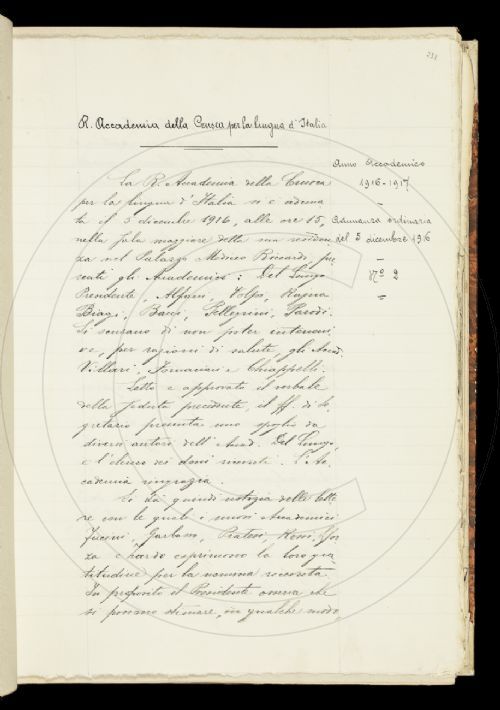 231
R. Accademia della Crusca per la lingua d'Italia
Anno Accademico
1916-1917
Adunanza ordinaria
del 5 dicembre 1916
Nº 2
La R. Accademia della Crusca
per la lingua d'Italia si è aduna
ta il 5 dicembre 1916, alle ore 15,
nella Sala maggiore della sua residen
za nel Palazzo Mediceo Riccardi, pre
senti gli Accademici: Del Lungo
Presidente, Alfani, Volpi, Rajna
Biagi, Bacci, Pellegrini, Parodi.
Si scusano di non poter interveni
re, per ragioni di salute, gli Acad.
Villari, Tortoli e Chiappelli.
Letto e approvato il verbale
della seduta precedente, il ff. di Se
gretario presenta uno spoglio da
diversi autori dell'Acad. Del Lungo,
e l'elenco dei doni ricevuti. L'Ac
cademia ringrazia.
Si dà quindi notizia delle lette
re con le quali i nuovi Accademici
Pratesi, Renier, Sfor
za esprimono la loro gra
titudine per la nomina ricevuta.
In proposito il Presidente osserva che
si possano stimare, in qualche modo,